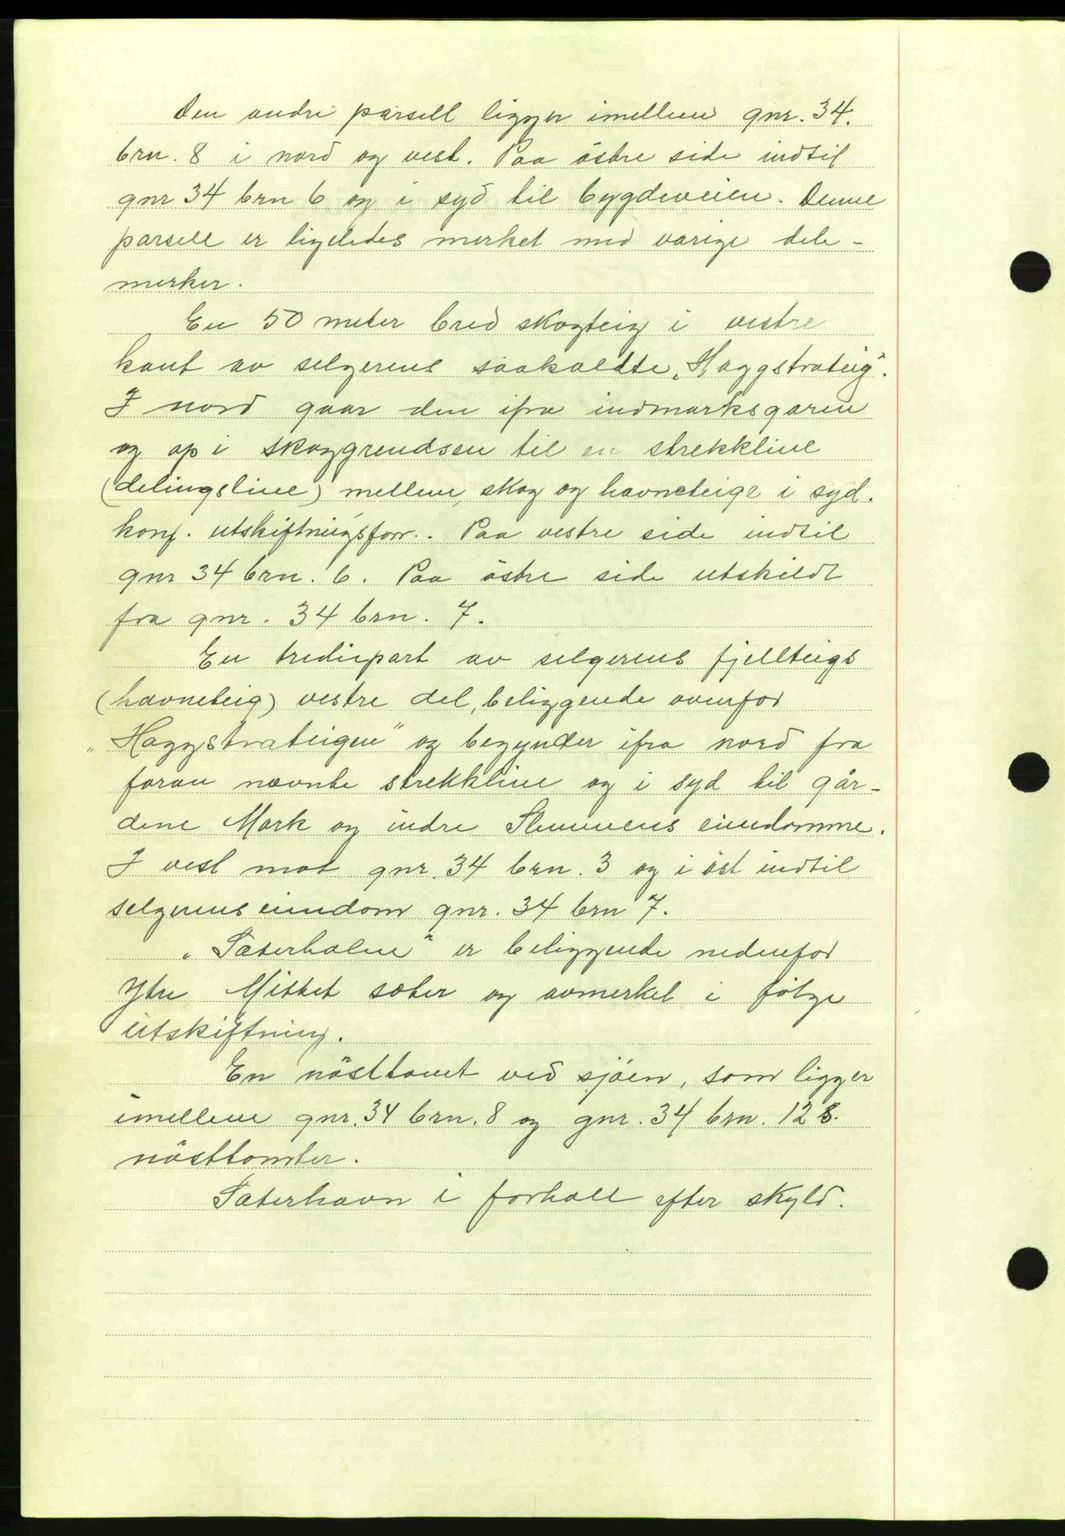 Den andre parsell ligger imellem gnr. 34.
brn. 8 i nord og vest. Paa östre side indtil
gnr 34 brn 6 og i syd til bygdeveien. Denne
parsell er ligeledes merket med varige dele-
merker.
En 50 meter bred skogteig i vestre
kant av selgerens saakaldte „Haggstrateig".
I nord gaar den ifra indmarksgaren
og op i skoggrendsen til en strekkline
(delingsline) mellem skog og havneteige i syd.
konf. utskiftningsforr.. Paa vestre side indtil
gnr 34 brn. 6. Paa östre side utskildt
fra gnr. 34 brn. 7.
En trediepart av selgerens fjellteigs
(havneteig) vestre del, beliggende ovenfor
„Haggstrateigen" og begynder ifra nord fra
foran nævnte strekkline og i syd til går-
dene Mork og indre Slemmens eiendomme.
I vest mot gnr. 34 brn. 3 og i öst indtil
selgerens eiendom gnr. 34 brn 7.
„Sæterholen" er beliggende nedenfor
Ytre Mittet sæter og avmerket i følge
utskiftning.
En nösttomt ved sjöen, som ligger
imellem gnr. 34 brn. 8 og gnr. 34 brn. 12 s.
nösttomter.
Sæterhavn i forholl efter skyld.